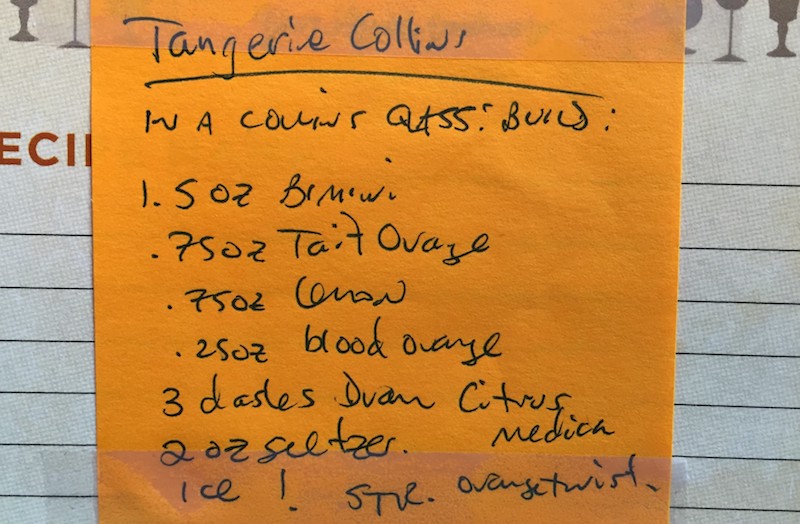 Tangerie Collins
IN A COLLINS GLASS: BUILD:
ECI
1.5 OZ Bimini
.75OZ Tait Orange
.75OZ Lemon
.25OZ blood orange
3 dashes Dram Citrus
Medica
2 OZ seltzer.
ICE ! STR. orange twist.